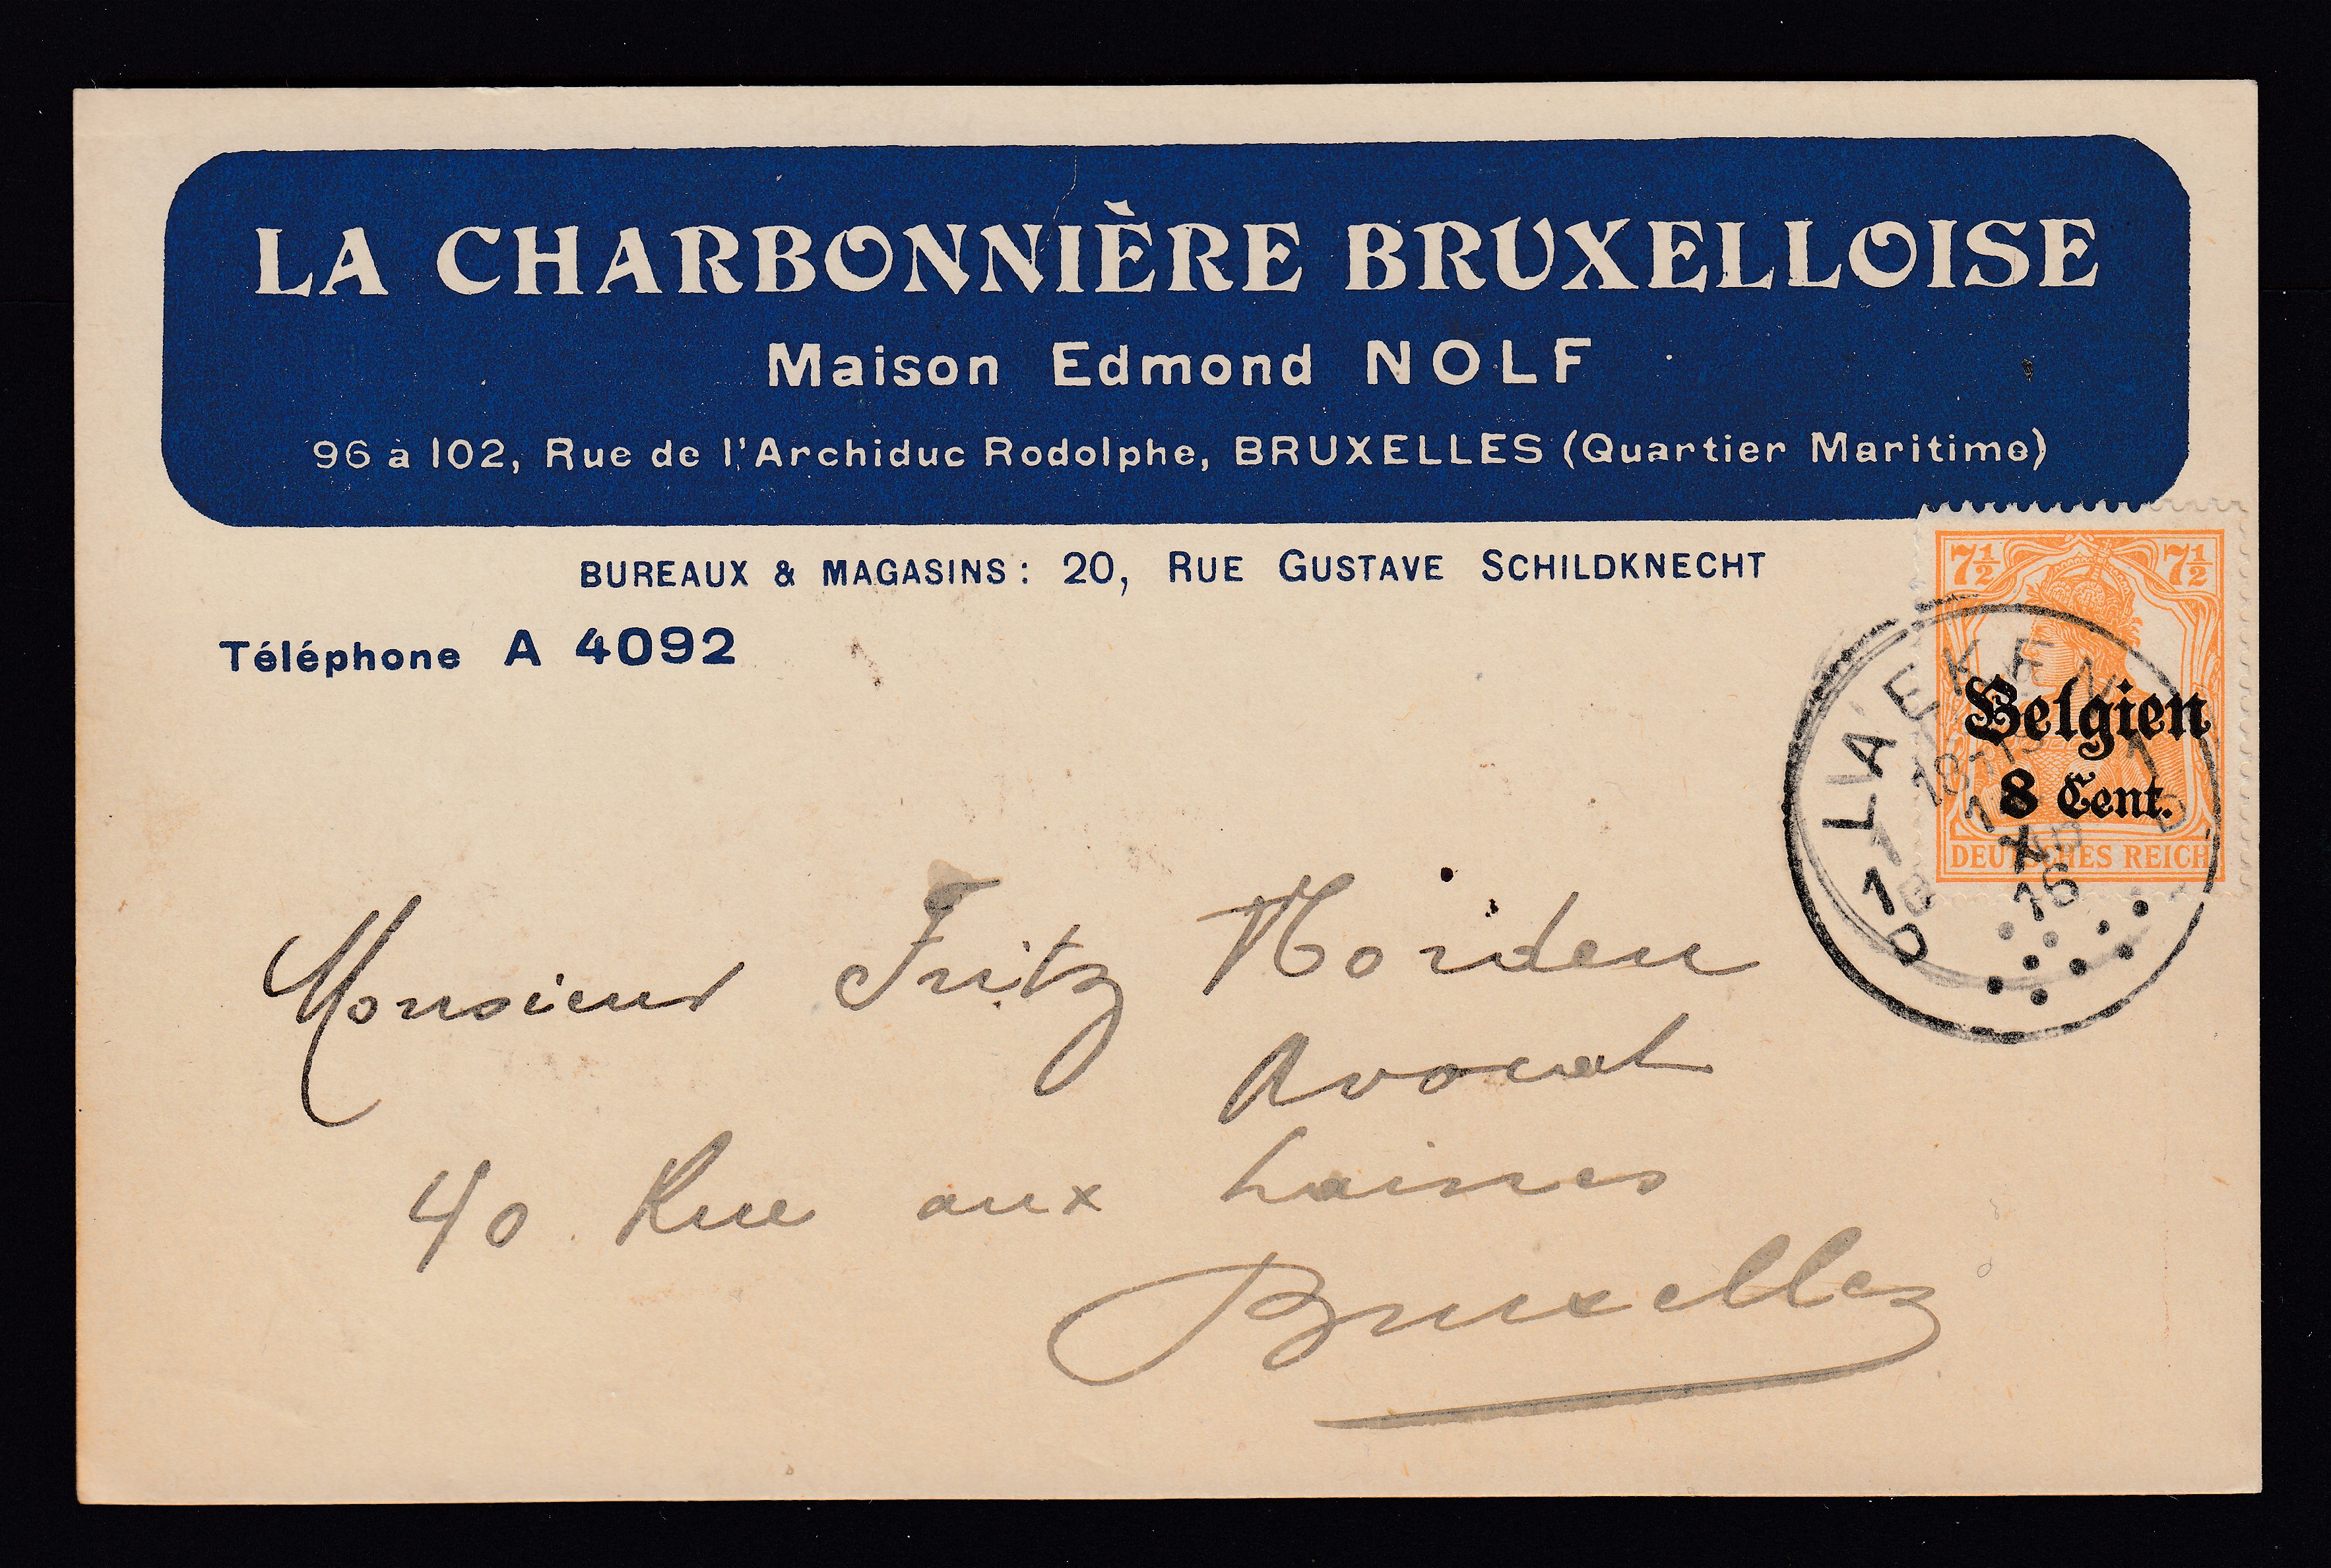 LA CHARBONNIÈRE BRUXELLOISE
Maison Edmond NOLF
96 à 102, Rue de l'Archiduc Rodolphe, BRUXELLES (Quartier Maritime)
BUREAUX & MAGASINS: 20, RUE GUSTAVE SCHILDKNECHT
Téléphone A 4092
7½ 7½
Belgien
8 Cent.
DEUTSCHES REICH
LAEKEN 1
X
16
D 1
Monsieur Fritz Norden
Avocat
40 Rue aux Laines
Bruxelles